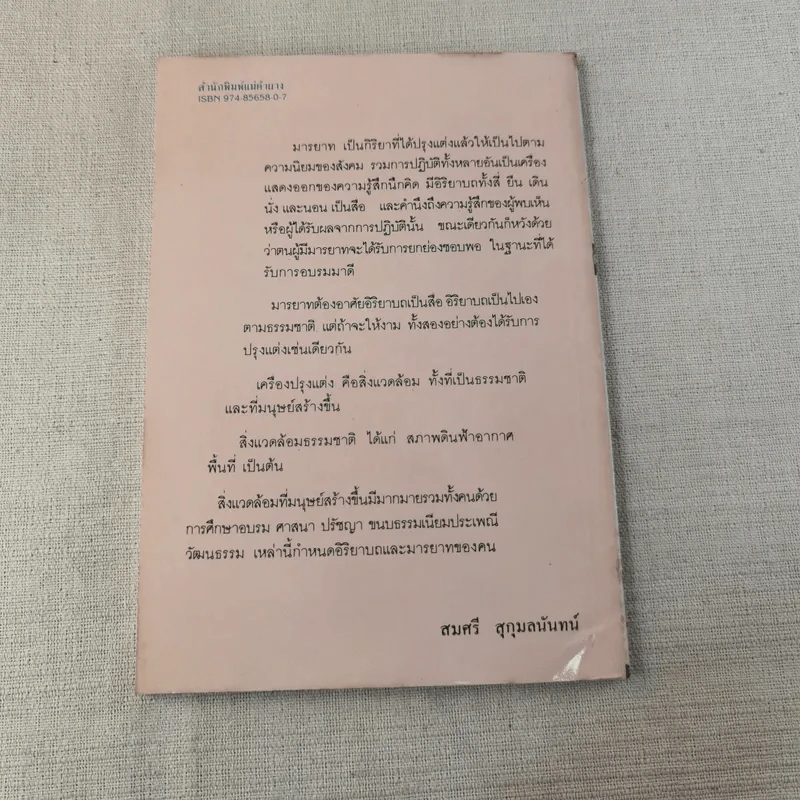 สำนักพิมพ์แม่คำผาง
ISBN 974-85658-0-7
มารยาท เป็นกิริยาที่ได้ปรุงแต่งแล้วให้เป็นไปตาม
ความนิยมของสังคม รวมการปฏิบัติทั้งหลายอันเป็นเครื่อง
แสดงออกของความรู้สึกนึกคิด มีอิริยาบถทั้งสี่ ยืน เดิน
นั่ง และนอน เป็นสื่อ และคำนึงถึงความรู้สึกของผู้พบเห็น
หรือผู้ได้รับผลจากการปฏิบัตินั้น ขณะเดียวกันก็หวังด้วย
ว่าตนผู้มีมารยาทจะได้รับการยกย่องชอบพอ ในฐานะที่ได้
รับการอบรมมาดี
มารยาทต้องอาศัยอิริยาบถเป็นสื่อ อิริยาบถเป็นไปเอง
ตามธรรมชาติ แต่ถ้าจะให้งาม ทั้งสองอย่างต้องได้รับการ
ปรุงแต่งเช่นเดียวกัน
เครื่องปรุงแต่ง คือสิ่งแวดล้อม ทั้งที่เป็นธรรมชาติ
และที่มนุษย์สร้างขึ้น
สิ่งแวดล้อมธรรมชาติ ได้แก่ สภาพดินฟ้าอากาศ
พื้นที่ เป็นต้น
สิ่งแวดล้อมที่มนุษย์สร้างขึ้นมีมากมายรวมทั้งคนด้วย
การศึกษาอบรม ศาสนา ปรัชญา ขนบธรรมเนียมประเพณี
วัฒนธรรม เหล่านี้กำหนดอิริยาบถและมารยาทของคน
สมศรี สุกุมลนันทน์